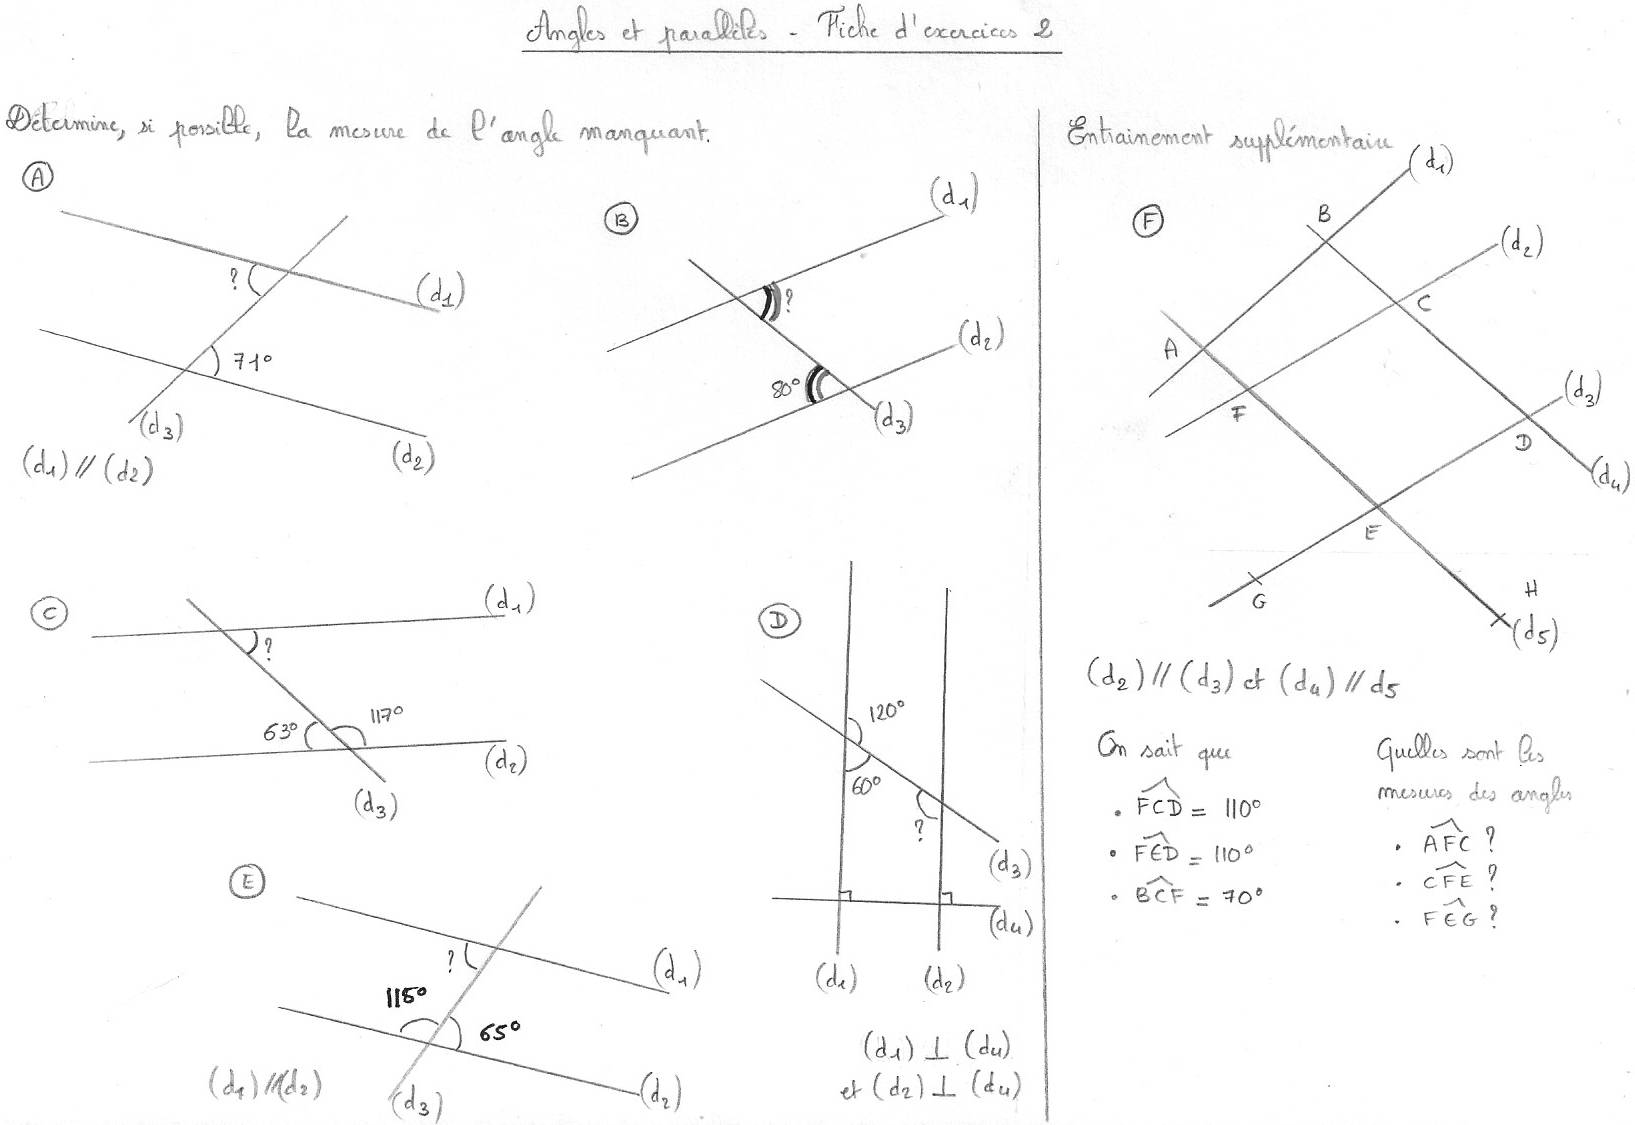 Angles et parallèles - Fiche d'exercices 2
Détermine, si possible, la mesure de l'angle manquant.
A
?
(d1)
71°
(d3)
(d2)
(d1) // (d2)
B
(d1)
?
(d2)
80°
(d3)
C
(d1)
?
63°
117°
(d2)
(d3)
D
120°
60°
?
(d3)
(d4)
(d1)
(d2)
(d1) ⊥ (d4)
et (d2) ⊥ (d4)
E
?
(d1)
115°
65°
(d1) // (d2)
(d3)
(d2)
Entrainement supplémentaire
F
(d1)
B
(d2)
C
A
F
(d3)
D
(d4)
E
G
H
(d5)
(d2) // (d3) et (d4) // d5
On sait que
. FCD = 110°
. FED = 110°
. BCF = 70°
Quelles sont les
mesures des angles
. AFC ?
. CFE ?
. FEG ?